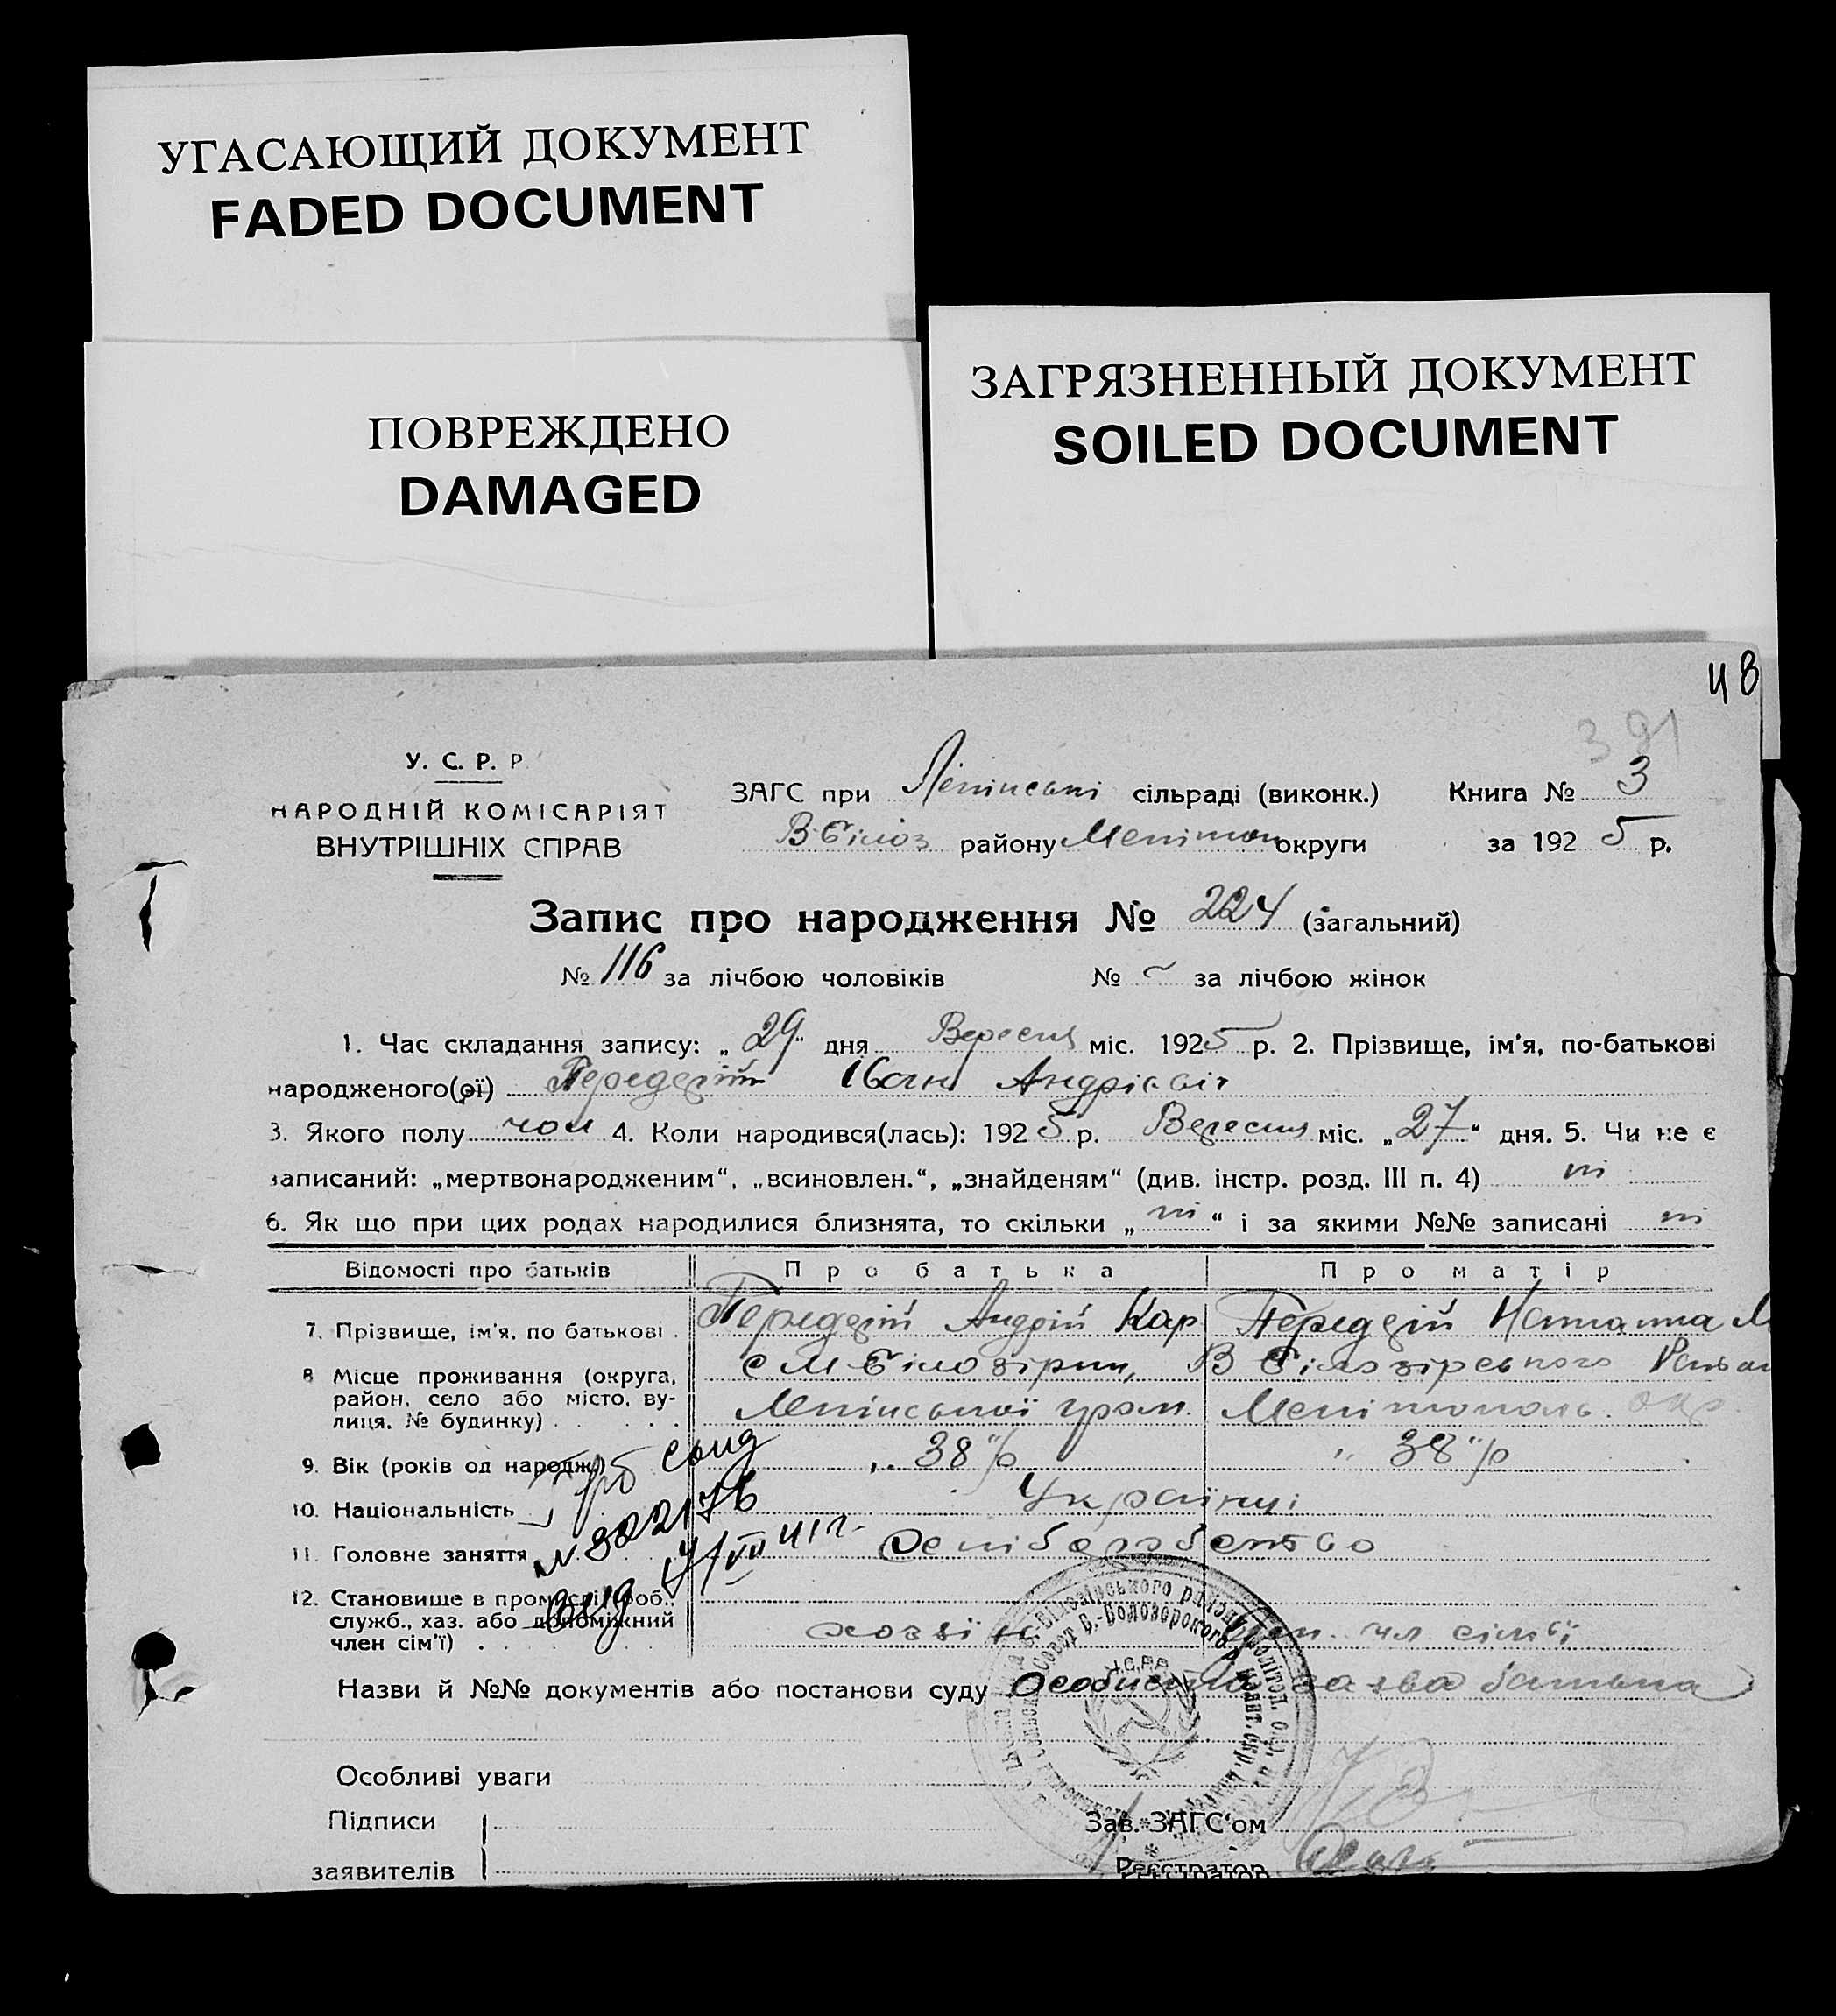 УГАСАЮЩИЙ ДОКУМЕНТ
FADED DOCUMENT
ПОВРЕЖДЕНО
DAMAGED
ЗАГРЯЗНЕННЫЙ ДОКУМЕНТ
SOILED DOCUMENT
48
391
У. С. Р. Р.
НАРОДНІЙ КОМІСАРІЯТ
ВНУТРІШНІХ СПРАВ
ЗАГС при Ленінські сільраді (виконк.) Книга № 3
В Білоз району Мелітоп округи за 1925 р.
Запис про народження № 224 (загальний)
№ 116 за лічбою чоловіків № — за лічбою жінок
1. Час складання запису: „29" дня Вересня міс. 1925 р. 2. Прізвище, ім'я, по-батькові
народженого(ої) Передерій Іван Андрієвіч
3. Якого полу чол 4. Коли народився(лась): 1925 р. Вересня міс. „27" дня. 5. Чи не є
записаний: „мертвонародженим", „всиновлен.", „знайденям" (див. інстр. розд. III п. 4) ні
6. Як що при цих родах народилися близнята, то скільки „ні" і за якими №№ записані ні
Відомості про батьків Про батька Про матір
7. Прізвище, ім'я, по батькові Передерій Андрій Кар Передерій Наталка
8 Місце проживання (округа, район, село або місто, вулиця, № будинку) с М Білозірки, В Білозірського
Ленінської гром. Мелітополь. окр.
9. Вік (років од народж.) „38" р „38" р
10. Національність Українці
11. Головне заняття
12. Становище в промислі (роб., служб., хаз. або допоміжний член сім'ї) хозяїн чл. сімї
№ 302176
17/VII 41 г.
Назви й №№ документів або постанови суду Особиста заява батька
Особливі уваги
Підписи
заявителів
Зав. ЗАГС'ом
Реєстратор
У.С.Р.Р.